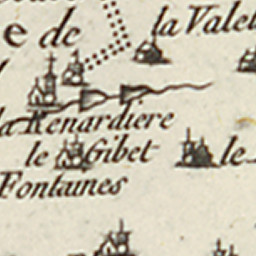 e de
la Valet
la Renardiere
le Gibet
le
Fontaines